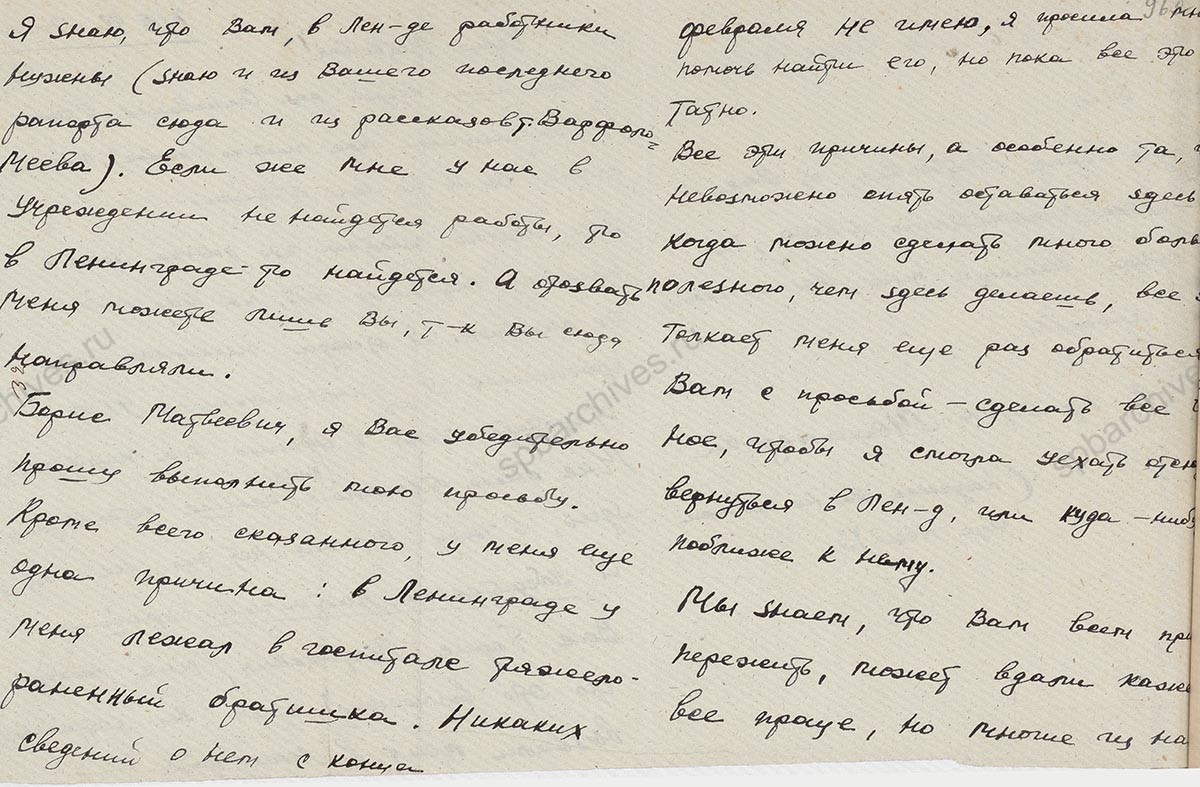 Я знаю, что Вам, в Лен-де работники
нужны (знаю и из Вашего последнего
рапорта сюда и из рассказов т. Варфоло=
меева). Если же мне у нас в
Учреждении не найдется работы, то
в Ленинграде-то найдется. А отозвать
меня можете лишь Вы, т-к Вы сюда
направляли.
Борис Матвеевич, я Вас убедительно
прошу выполнить мою просьбу.
Кроме всего сказанного, у меня еще
одна причина: в Ленинграде у
меня лежал в госпитале тяжело-
раненный братишка. Никаких
сведений о нем с конца
96
февраля не имею, я просила
помочь найти его, но пока все это
татно.
Все эти причины, а особенно та,
невозможно опять оставаться здесь
когда можно сделать много боль
полезного, чем здесь делаешь, все
толкает меня еще раз обратиться
Вам с просьбой – сделать все
ное, чтобы я смогла уехать отсю
вернуться в Лен-д, или куда-ниб
поближе к нему.
Мы знаем, что Вам всем при
пережить, может вдали каж
все проще, но многие из на
spbarchives.ru